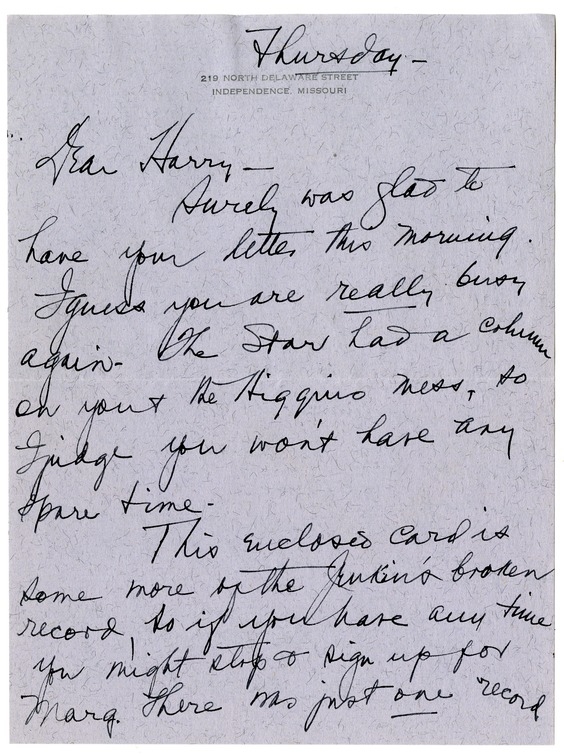 Thursday –
219 NORTH DELAWARE STREET
INDEPENDENCE, MISSOURI
Dear Harry –
Surely was glad to
have your letter this morning.
I guess you are really busy
again – The Star had a column
on you & the Higgins mess, so
I judge you won't have any
spare time –
This enclosed card is
some more on the Jenkin's broken
record, so if you have any time
you might stop & sign up for
Marg. There was just one record